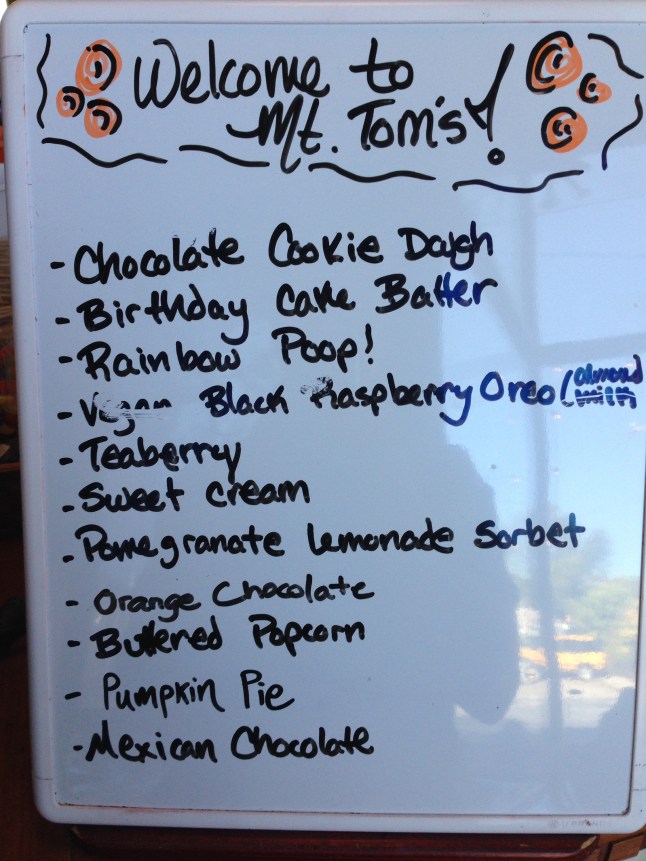 Welcome to
Mt. Tom's!
- Chocolate Cookie Dough
- Birthday Cake Batter
- Rainbow Poop!
- Vegan Black Raspberry Oreo (almond milk
- Teaberry
- Sweet cream
- Pomegranate Lemonade Sorbet
- Orange Chocolate
- Buttered Popcorn
- Pumpkin Pie
- Mexican Chocolate